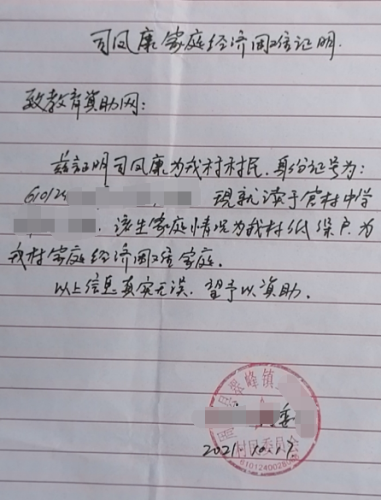 司凤廉家庭经济困难证明.
致教育资助网：
兹证明司凤廉为我村村民，身份证号为：
6101240 现就读于官村中学
该生家庭情况为我村低保户为
我村家庭经济困难家庭。
以上信息真实无误，望予以资助。
张峰镇
委
村民委员会
2021.10.17
6101240028